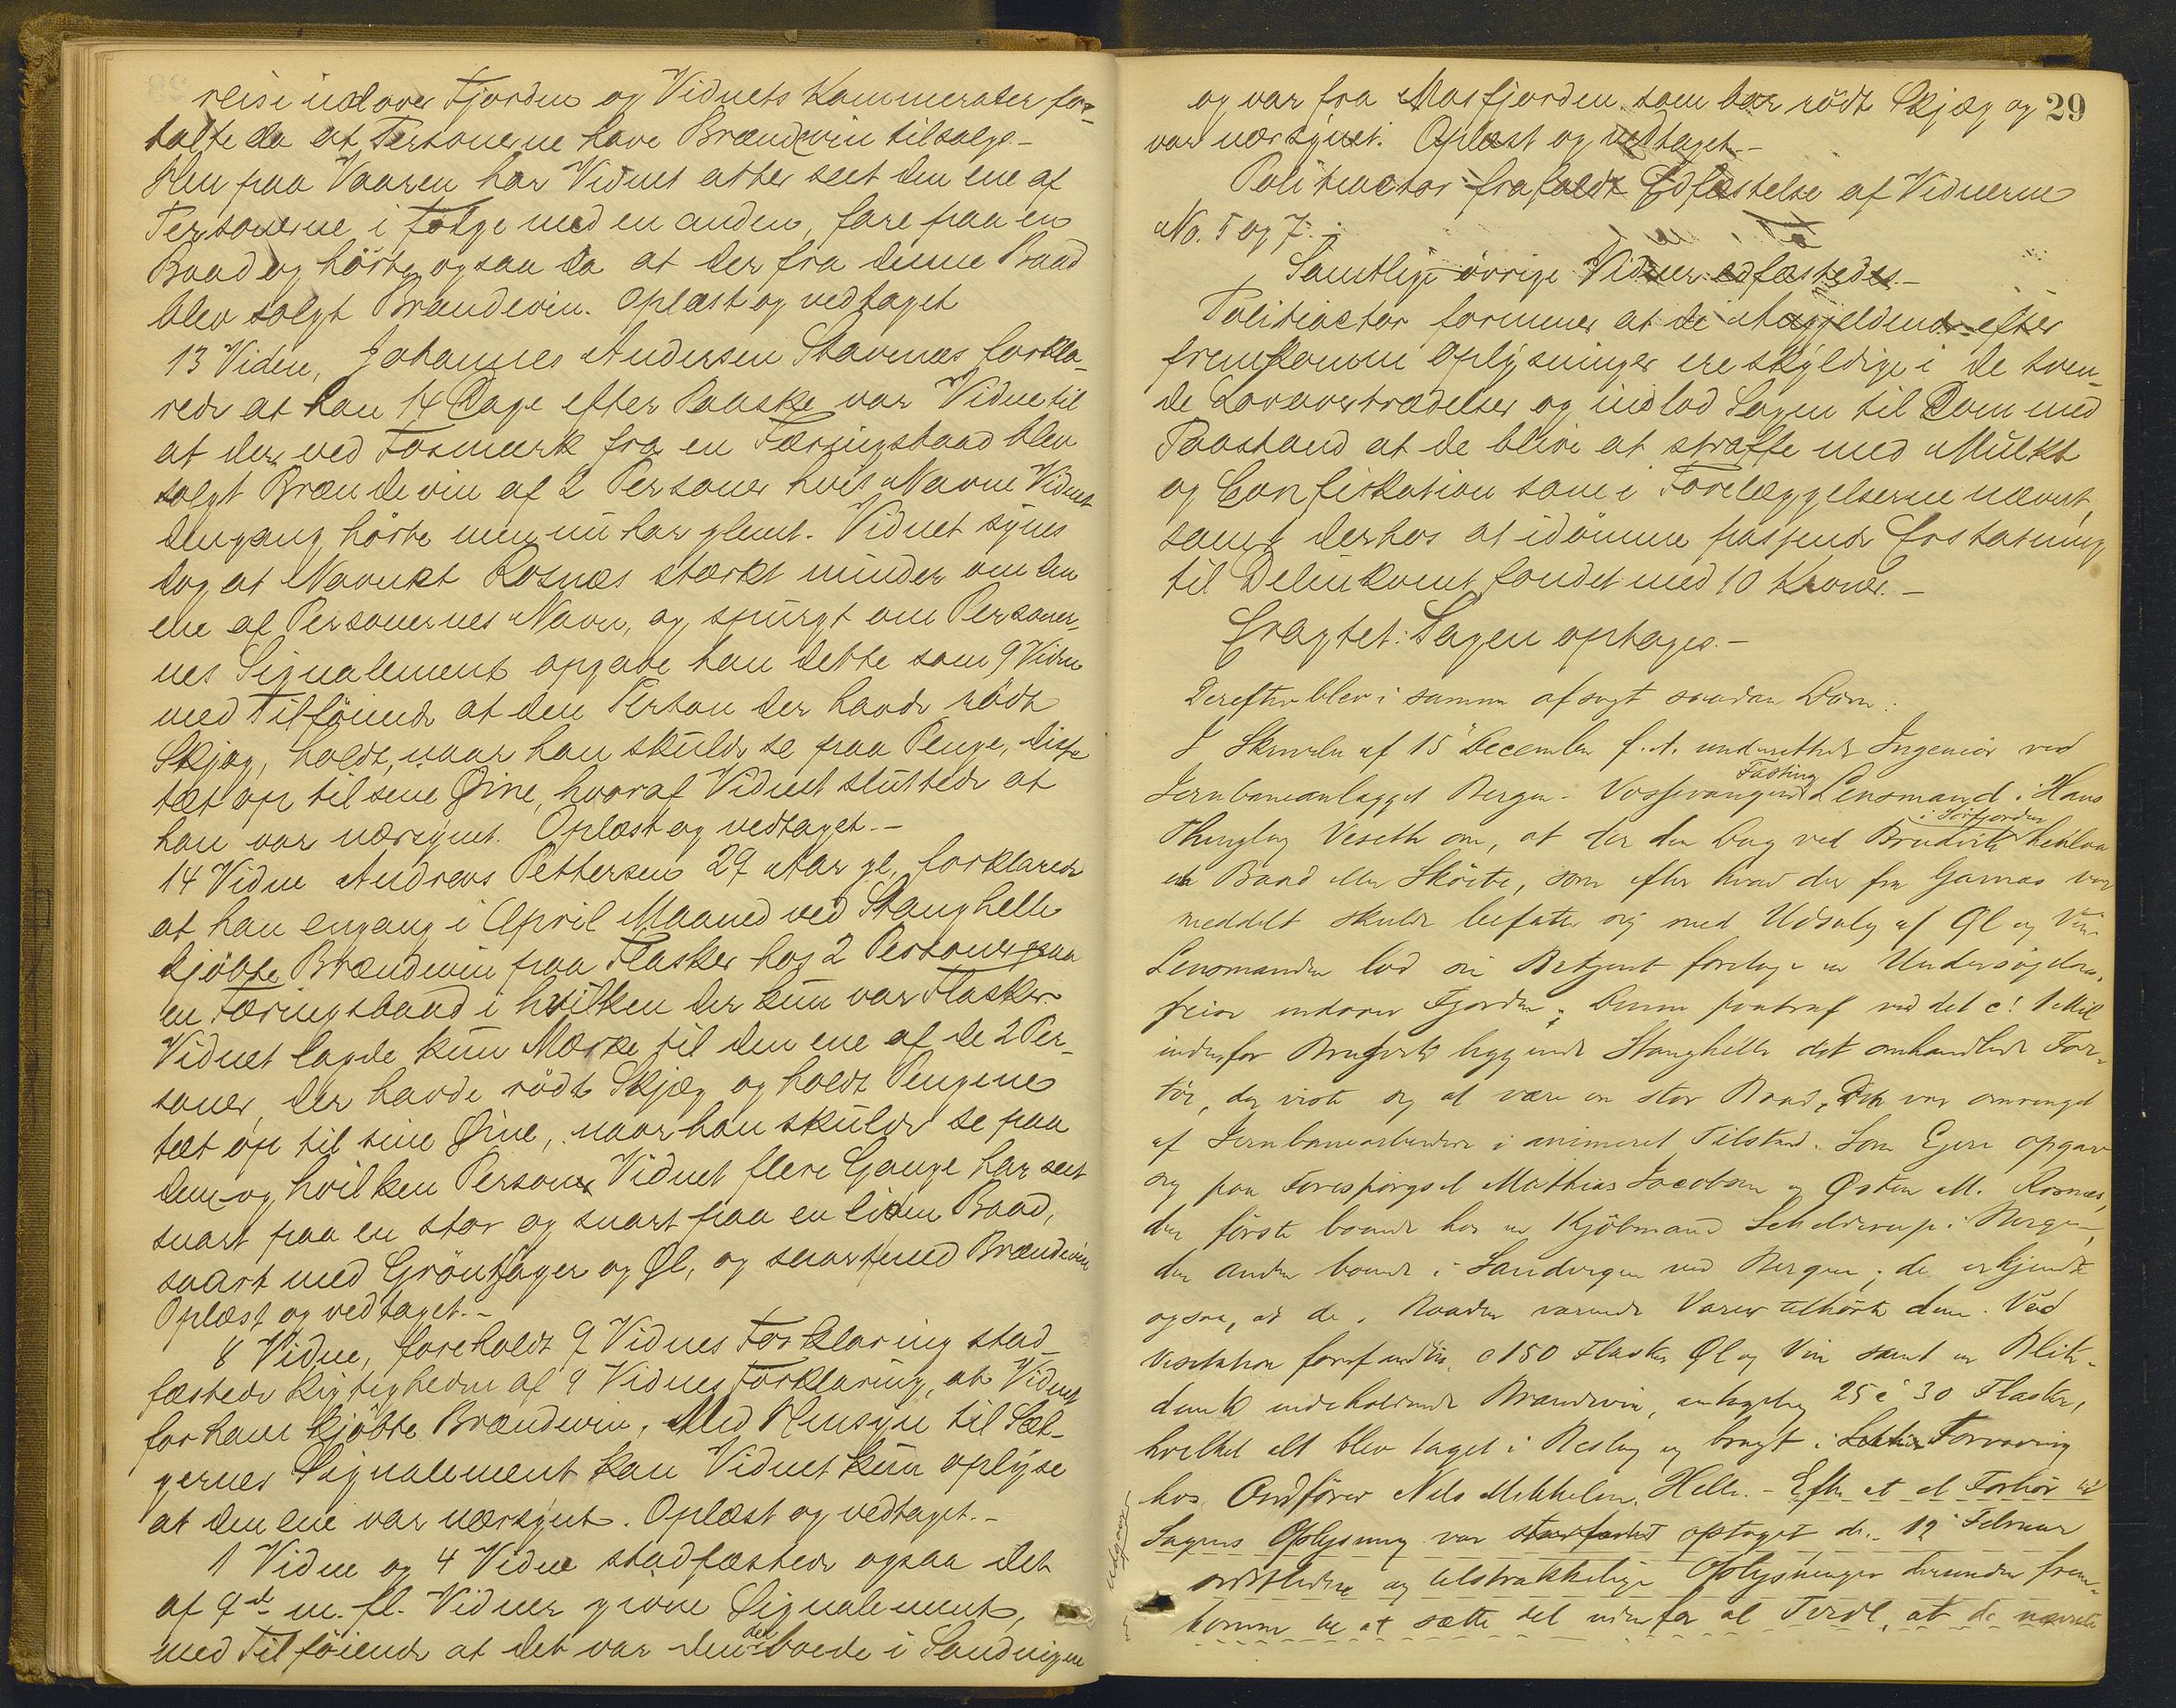 reise udover Fjorden og Vidnets Kammerater for-
talte da at Personerne have Brændevin tilsalgs.-
Hen paa Vaaren har Vidnet atter seet den ene af
Personerne i Følge med en anden, fare paa en
Baad og hørte ogsaa da at der fra denne Baad
blev solgt Brændevin. Oplæst og vedtaget
13 Vidne, Johannes Andersen Stavenæs forkla-
rede at han 14 Dage efter Paaske var Vidne til
at der ved Fosmærk fra en Færingsbaad blev
solgt Brændevin af 2 Personer hvis Navne Vidnet
dengang hørte men nu har glemt. Vidnet synes
dog at Navnet Rosnæs stærkt minder om den
ene af Personernes Navn, og spurgt om Personer-
nes Signalement opgave han dette som 9 Vidne
med Tilføiende at den Person der havde rødt
Skjæg, holdt, naar han skulde se paa Penge, disse
tæt op til sine Øine, hvoraf Vidnet sluttede at
han var nærsynet. Oplæst og vedtaget.-
14 Vidne Andreas Pettersen 29 Aar gl. forklarede
at han engang i April Maaned ved Stanghelle
kjøbte Brændevin paa Flasker hos 2 Personer paa
en Færingsbaad i hvilken der kun var Flasker.
Vidnet lagde kun Mærke til den ene af de 2 Per-
soner, der havde rødt Skjæg og holdt Pengene
tæt op til sine Øine, naar han skulde se paa
dem og hvilken Person Vidnet flere Gange har seet
snart paa en stor og snart paa en liden Baad,
snart med Grøntsager og Øl, og snart med Brændevin
Oplæst og vedtaget.-
8 Vidne, foreholdt 9 Vidnes Forklaring stad-
fæstede Rigtigheden af 9 Vidnes Forklaring, at Vidnet
for ham kjøbte Brændevin. Med Hensyn til Sæl-
gernes Signalement kan Vidnet kun oplyse
at den ene var nærsynt. Oplæst og vedtaget.-
1 Vidne og 4 Vidne stadfæstede ogsaa det
af 9de m. fl. Vidner givne Signalement,
med Tilføiende at det var den der boede i Sandvigen
29
og var fra Masfjorden som har rødt Skjæg og
var nærsynet. Oplæst og vedtaget.-
Politiactor frafaldt Edfæstelse af Vidnerne
No. 5 og 7.-
Samtlige øvrige Vidner edfæstedes.-
Politiactor formener at de Angjeldende efter
fremkomne Oplysninger ere skyldige i de tven-
de Lovovertrædelser og indlod Sagen til Dom med
Paastand at de blive at straffe med Mulkt
og Confiskation som i Forelæggelserne nævnt,
samt derhos at idømme passende Erstatning
til Delinkventfondet med 10 Kroner.-
Eragtet: Sagen optages.-
Derefter blev i samme afsagt saadan Dom:
I Skrivelse af 15 December f. A. underrettede Ingeniør ved
Jernbaneanlægget Bergen - Vossevangen Fasting Lensmand i Haus
Thinglag Veseth om, at der den Dag ved Bruvik i Sørfjorden
en Baad eller Skøite, som efter hvad der fra Garnæs var
meddelt skulde befatte sig med Udsalg af Øl og Vin
Lensmanden lod sin Betjent foretage en Undersøgelses-
reise indover Fjorden; Denne paatraf ved det c! 1 Mil
indenfor Bruvik liggende Stanghelle det omhandlede Far-
tøi, der viste sig at være en stor Baad, Den var omringet
af Jernbanearbeidere i animeret Tilstand. Som Eiere opgav
sig paa Forespørgsel Mathias Jacobsen og Østen M. Rosnæs,
den første boende hos en Kjøbmand Schelderup i Bergen,
den anden boende i Sandvigen ved Bergen; de erkjendte
ogsaa, at de i Baaden værende Varer tilhørte dem. Ved
Visitation forefandtes c 150 Flasker Øl og Vin samt en Blik-
dunk indeholdende Brændevin, antagelig 25 à 30 Flasker,
hvilket alt blev taget i Beslag og bragt i Forvaring
hos Ordfører Nils Mikkelsen Helle. - Efter at et Forhør til
Sagens Oplysning var optaget den 12 Februar
og tilstrækkelige Oplysninger derunder frem-
komne til at sætte det udenfor al Tvivl, at de nævnte